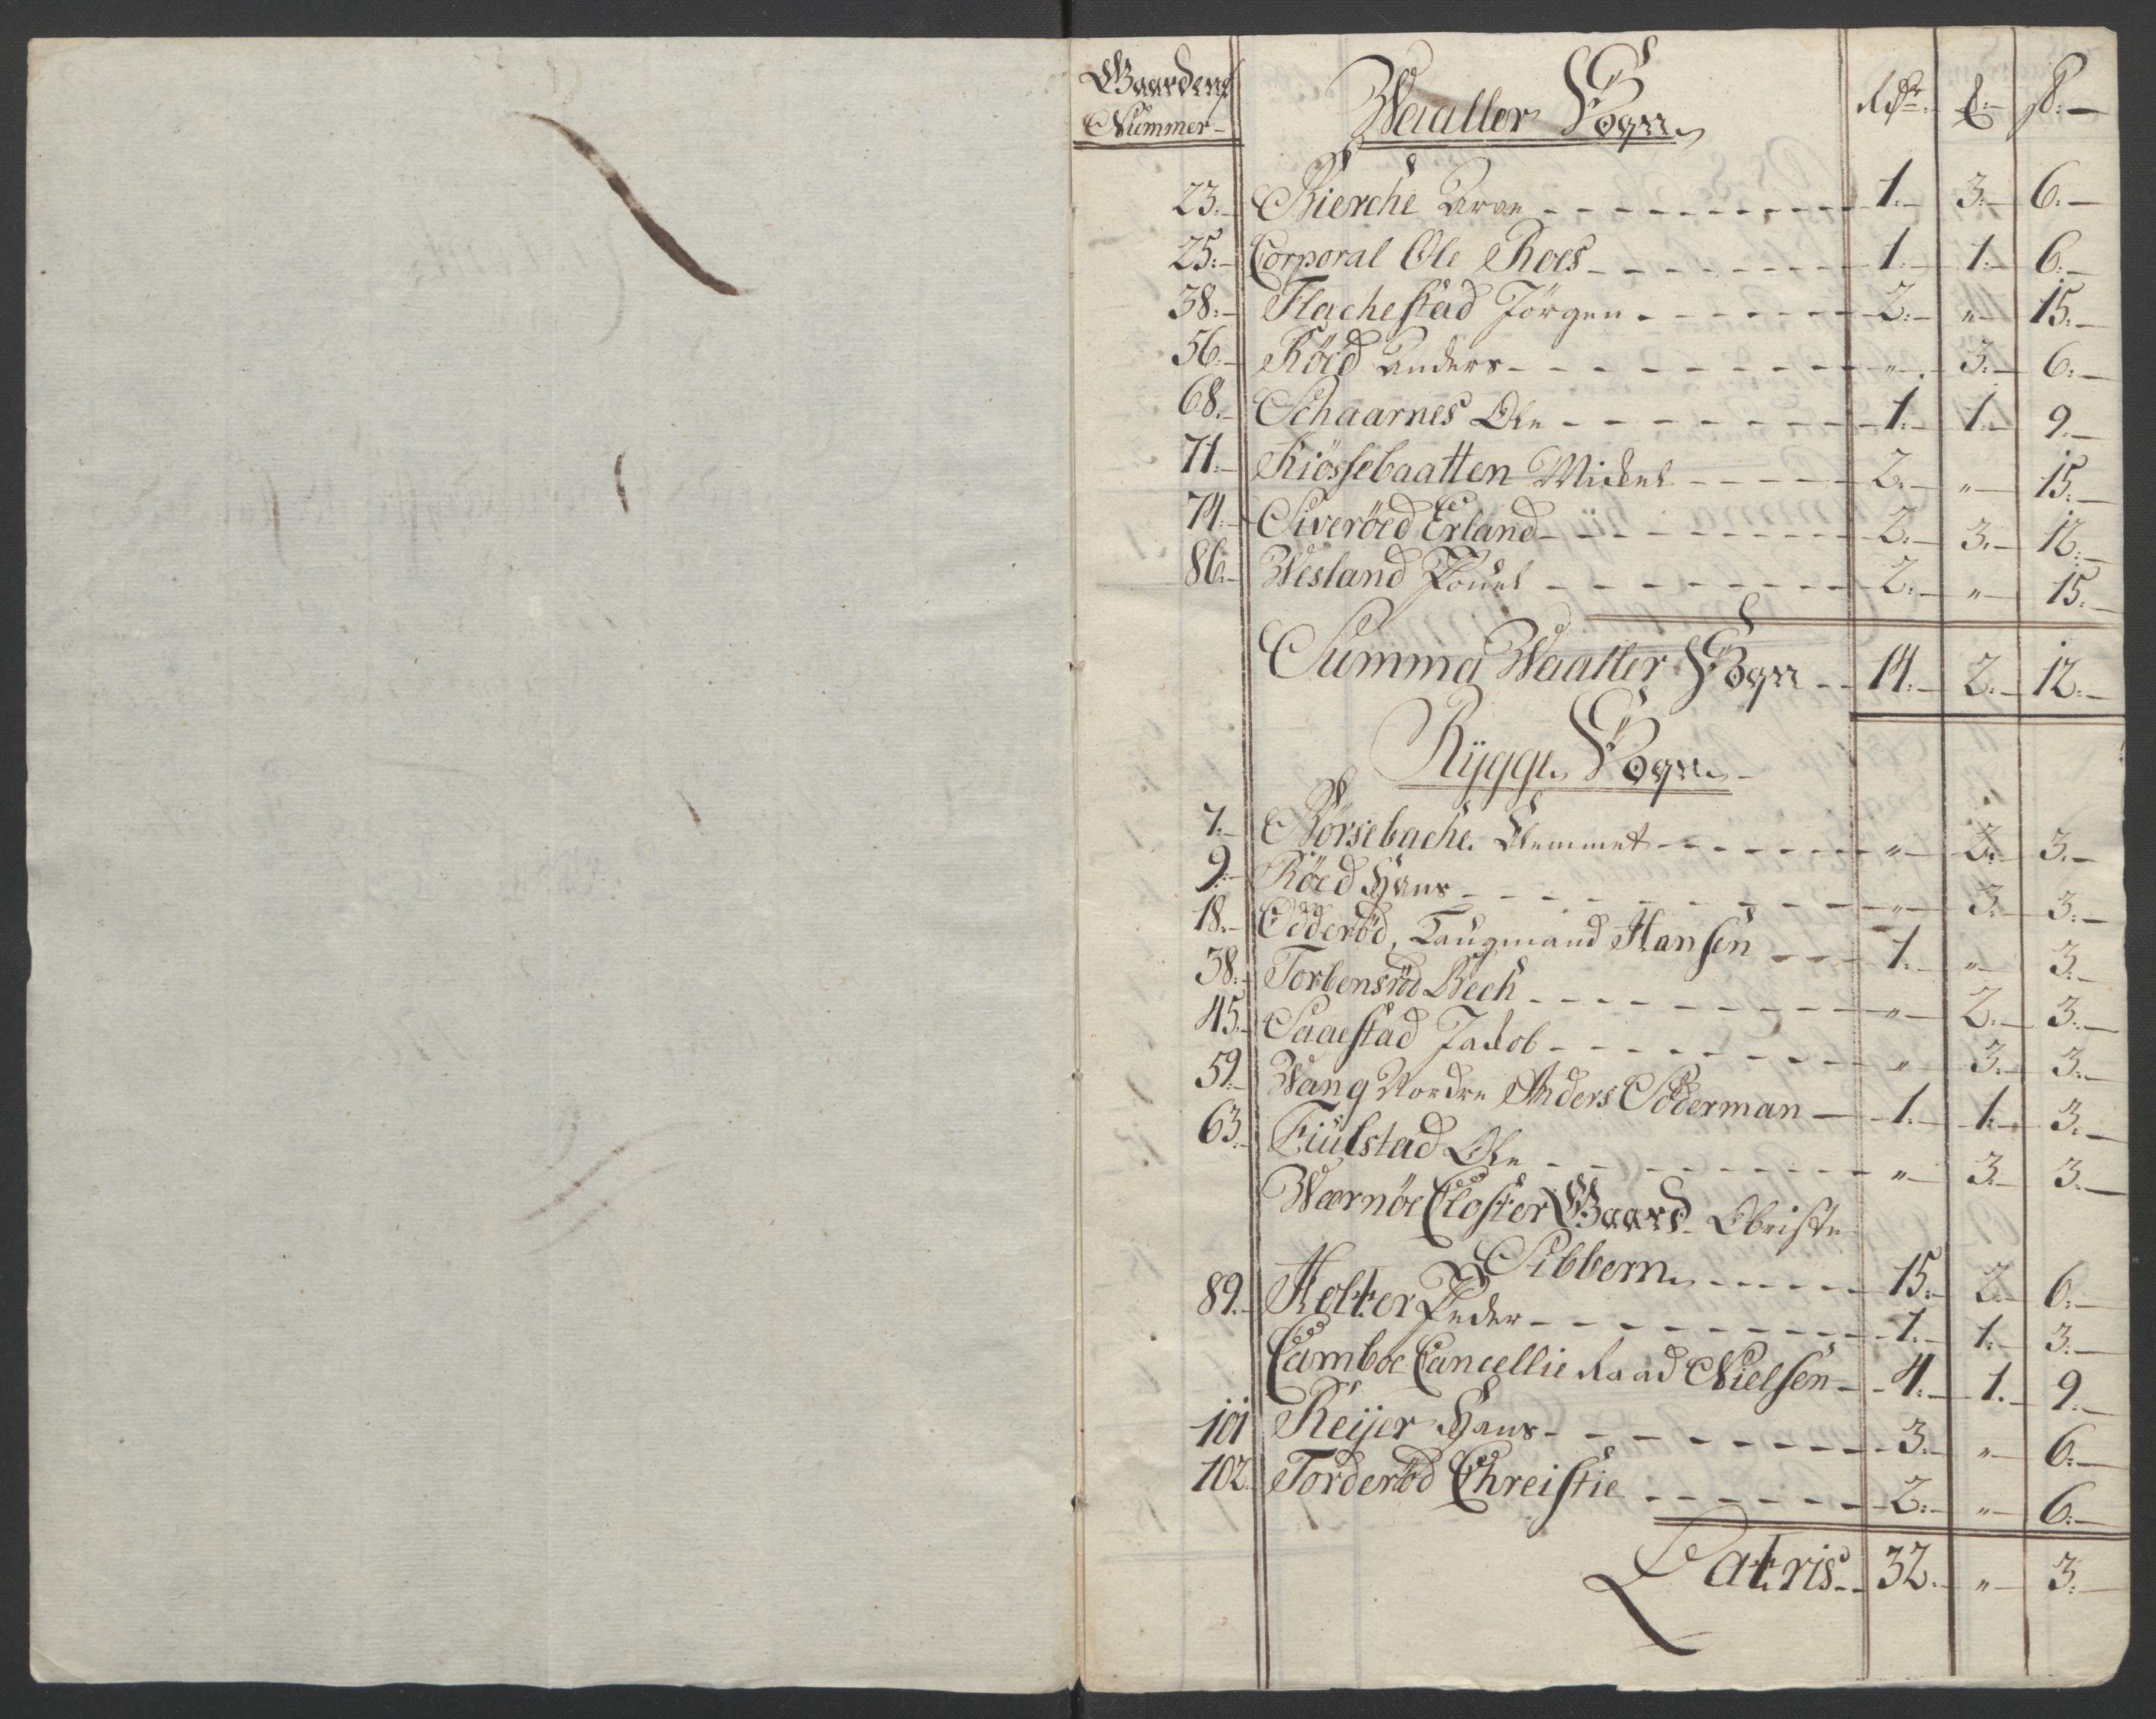 Gaardens Nummer - Waaller Sogn Rdr: ℔:- ß:-
23:- Kierche Arne - - - 1:- 3:- 6:-
25:- Corporal Ole Roes - - - 1:- 1:- 6:-
38:- Hachestad Jörgen - - - 2:- „- 15:-
56:- Röed Anders - - - „- 3:- 6:-
68:- Schaarnes Ole - - - 1:- 1:- 9:-
71:- Kiössebaatten Michel - - - 2:- „- 15:-
74:- Siveröed Erland - - - 2:- 3:- 12:-
86:- Wesland Povel - - - 2:- „- 15:-
Summa Waaller Sogn - - 14:- 2:- 12:-
Rÿgge Sogn
7:- Börsebache Klemmet - - - „- 2:- 3:-
9:- Röed Hans - - - „- 3:- 3:-
18:- Oderöd, Laugmand Hansen - - - 1:- „- 3:-
38:- Torbensröd Bech - - - „- 2:- 3:-
45:- Saaestad Jacob - - - „- 3:- 3:-
59:- Wang Nordre Anders Söderman - 1:- 1:- 3:-
63:- Fiulstad Ole - - - „- 3:- 3:-
Wærnöe Closter Gaard Obriste
Sibbern - - - 15:- 2:- 6:-
89:- Holter Peder - - - 1:- 1:- 3:-
Camboe Cancellie Raad Nielsen - - 4:- 1:- 9:-
101 Reijer Hans - - - 3:- „- 6:-
102 Torderöd Chreistie - - - 2:- „- 6:-
Latris - - 32:- „- 3:-